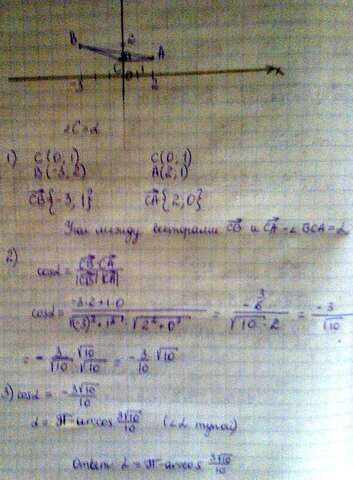 B
2
A
C
-3
2
x
∠C = α
1) C(0, 1) C(0, 1)
B(-3, 2) A(2, 1)
CB{-3, 1} CA{2, 0}
Угол между векторами CB и CA - ∠BCA = α
2)
cosα = CB·CA / |CB|·|CA|
cosα = -3·2+1·0 / √(-3)²+1² · √2²+0² = -6 / √10·2 = -3 / √10
= - 3/√10 · √10/√10 = - 3/10 √10
3) cosα = - 3√10/10
α = π - arccos 3√10/10 (∠α тупой)
Ответ: α = π - arccos 3√10/10